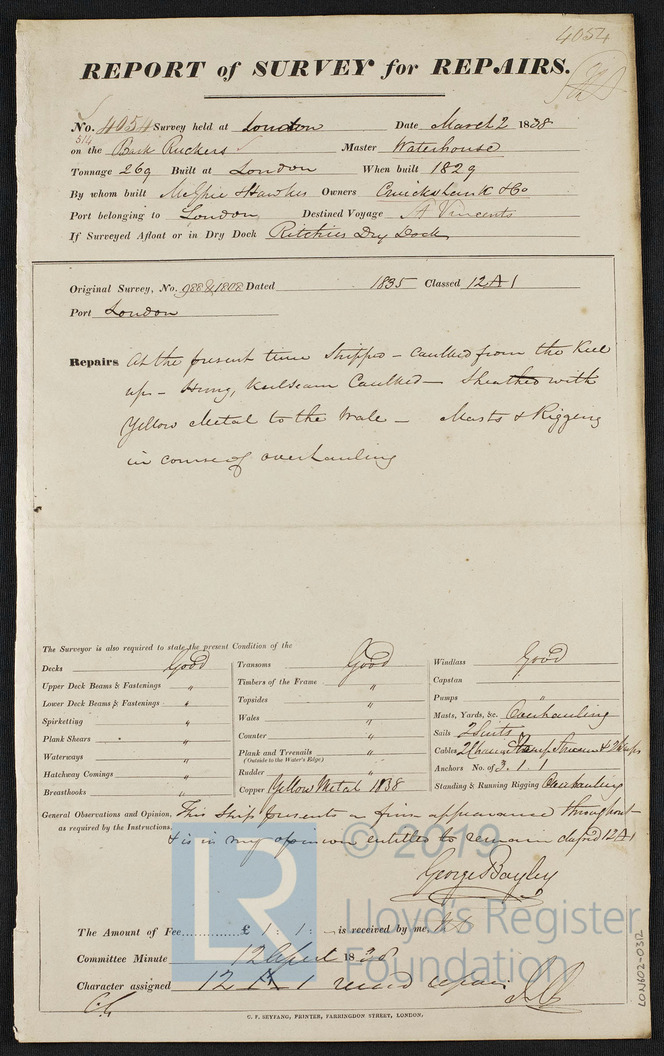 4054
REPORT of SURVEY for REPAIRS.
No. 4054 Survey held at London Date March 2 1838
514
on the Bark Ruckers Master Waterhouse
Tonnage 269 Built at London When built 1829
By whom built McGhie & Hawkes Owners Cruickshank & Co
Port belonging to London Destined Voyage St Vincents
If Surveyed Afloat or in Dry Dock Ritchies Dry Dock
Original Survey, No. 988 & 1808 Dated 1835 Classed 12 A 1
Port London
Repairs At the present time stripped - caulked from the Keel
up - Hung, keelseam Caulked - Sheathed with
Yellow Metal to the Wale - Masts & Rigging
in course of overhauling
The Surveyor is also required to state the present Condition of the
Decks Good
Upper Deck Beams & Fastenings "
Lower Deck Beams & Fastenings "
Spirketting "
Plank Shears "
Waterways "
Hatchway Comings "
Breasthooks "
Transoms Good
Timbers of the Frame "
Topsides "
Wales "
Counter "
Plank and Treenails "
(Outside to the Water's Edge)
Rudder "
Copper Yellow Metal 1838
Windlass Good
Capstan
Pumps "
Masts, Yards, &c. Overhauling
Sails 2 Suits
Cables 2 Chains Hemp Stream & 2 Warps
Anchors No. of 3. 1. 1
Standing & Running Rigging Overhauling
General Observations and Opinion, This Ship presents a firm appearance throughout
as required by the Instructions. & is in my opinion entitled to remain classed 12 A 1
George Bayley
The Amount of Fee £ 1 : 1 : - is received by me,
Committee Minute 12 April 1838
Character assigned 12 A 1 record repairs
C. F. SEYFANG, PRINTER, FARRINGDON STREET, LONDON.
LON602-0312
© 2019
LR
Lloyd's Register
Foundation